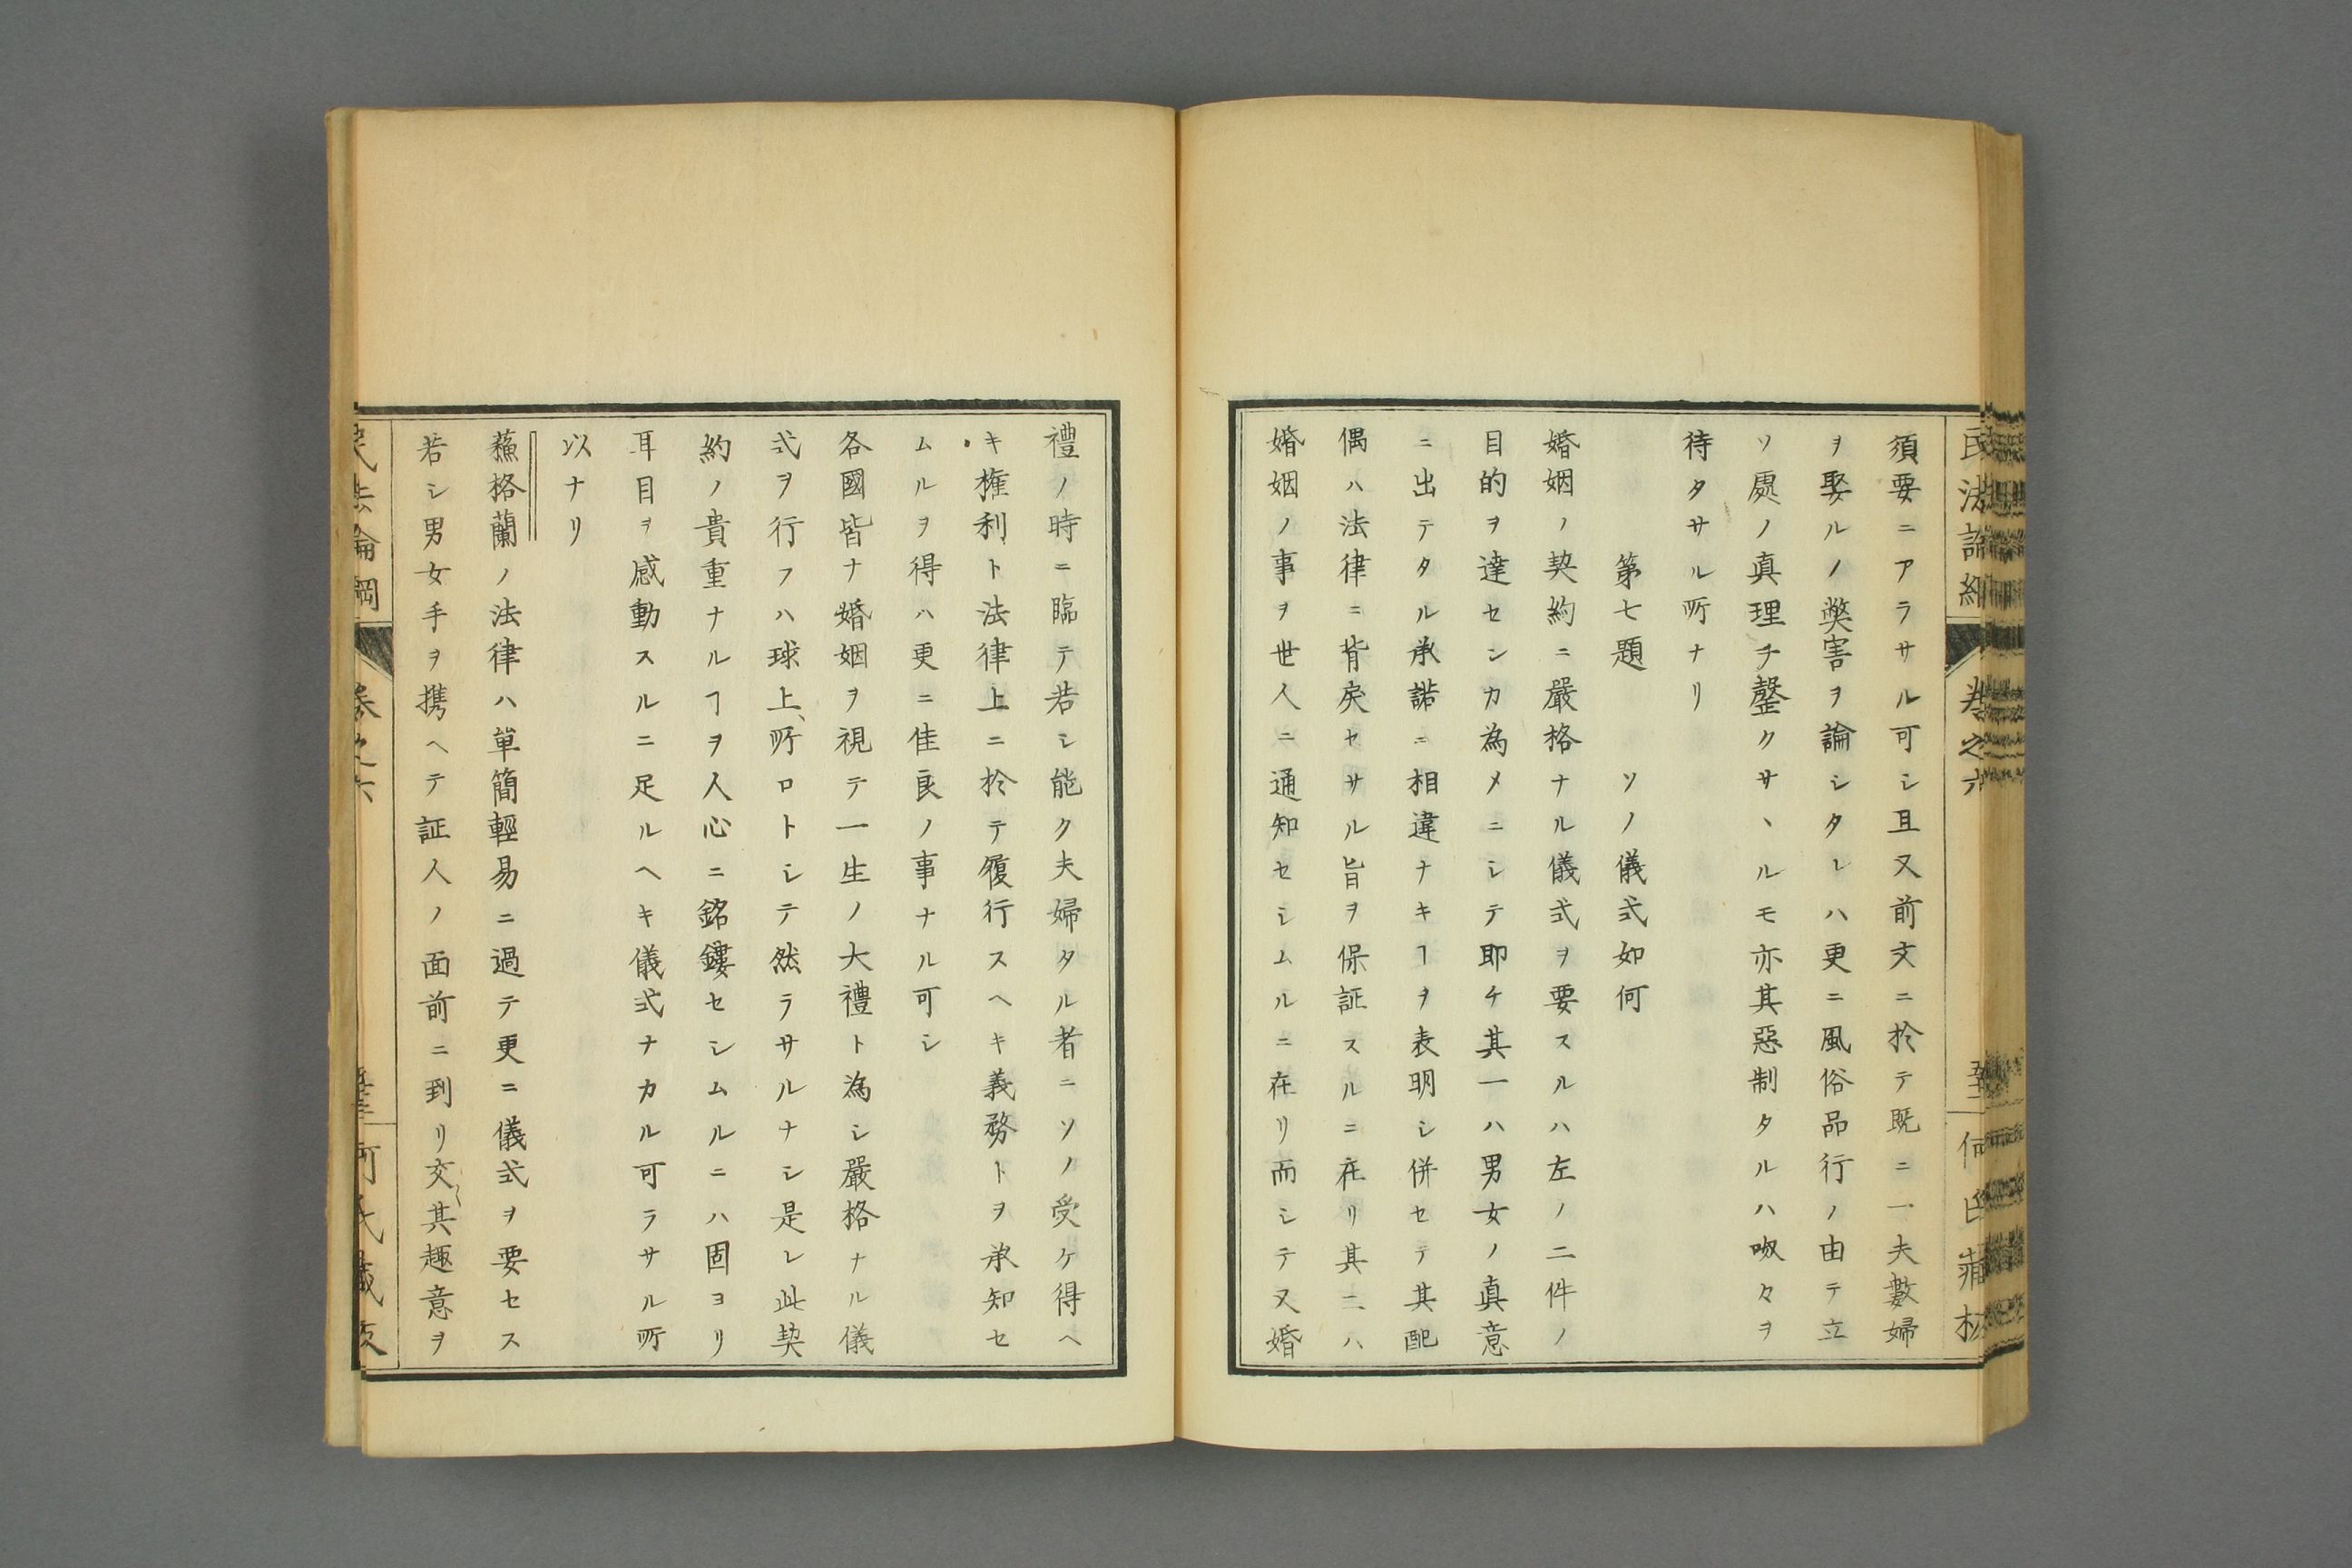 須要ニアラサル可シ且又前文ニ於テ既ニ一夫數婦
ヲ娶ルノ弊害ヲ論シタレハ更ニ風俗品行ノ由テ立
ソ處ノ真理チ鑿クサヽルモ亦其惡制タルハ呶々ヲ
待タサル所ナリ
第七題　ソノ儀式如何
婚姻ノ契約ニ嚴格ナル儀式ヲ要スルハ左ノ二件ノ
目的ヲ達センカ為メニシテ即チ其一ハ男女ノ真意
ニ出テタル承諾ニ相違ナキヿヲ表明シ併セテ其配
偶ハ法律ニ背戾セサル旨ヲ保証スルニ在リ其二ハ
婚姻ノ事ヲ世人ニ通知セシムルニ在リ而シテ又婚
民法論綱
卷之六
禮ノ時ニ臨テ若シ能ク夫婦タル者ニソノ受ケ得ヘ
キ権利ト法律上ニ於テ履行スヘキ義務トヲ承知セ
ムルヲ得ハ更ニ佳良ノ事ナル可シ
各國皆ナ婚姻ヲ視テ一生ノ大禮ト為シ嚴格ナル儀
式ヲ行フハ球上、所ロトシテ然ラサルナシ是レ此契
約ノ貴重ナルヿヲ人心ニ銘鏤セシムルニハ固ヨリ
耳目ヲ感動スルニ足ルヘキ儀式ナカル可ラサル所
以ナリ
蘓格蘭ノ法律ハ単簡輕易ニ過テ更ニ儀式ヲ要セス
若シ男女手ヲ携ヘテ証人ノ面前ニ到リ交〻其趣意ヲ
民法論綱
卷之六
何氏藏版